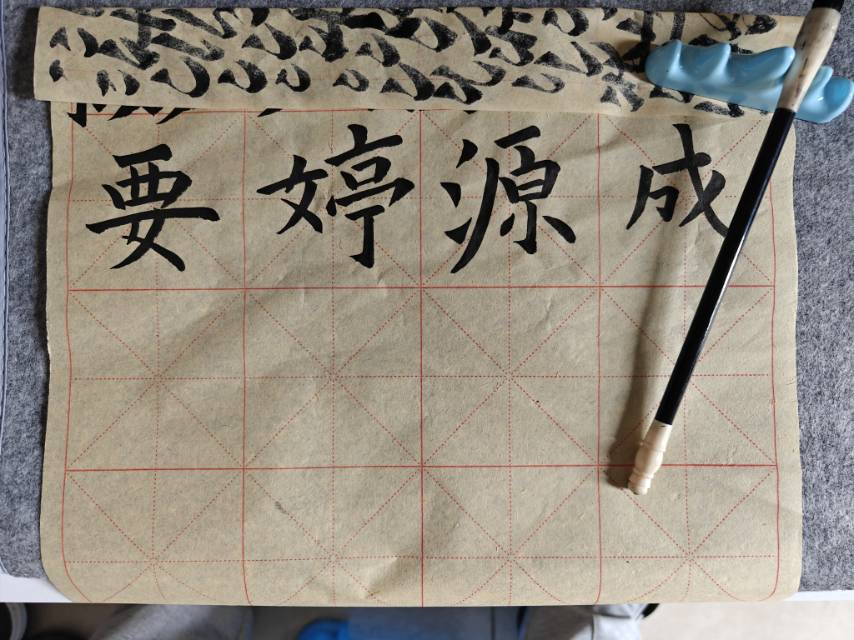 要婷源成